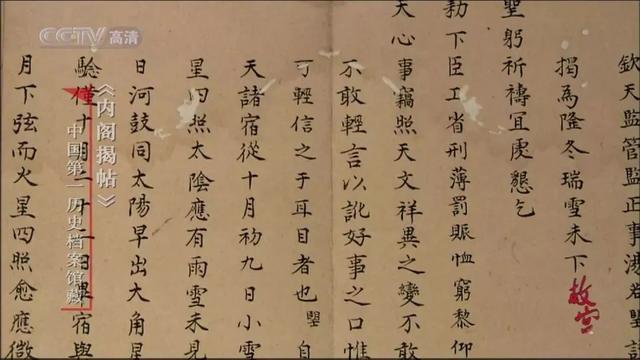 CCTV 高清
欽天監管監正事湯若望
揭為隆冬瑞雪未下
聖躬祈禱冝虔懇乞
勑下臣工省刑薄罰賑恤窮黎仰
天心事竊照天文祥異之變不敢
不敢輕言以訛好事之口惟
可輕信之于耳目者也 自
天諸宿從十月初九日小雪
星四照太陰應有雨雪未見
日河鼓同太陽早出大角星
驗僅十月二十二日畢宿與
月下弦而火星四照愈應微
《内阁揭帖》
中国第一历史档案馆藏
故宫